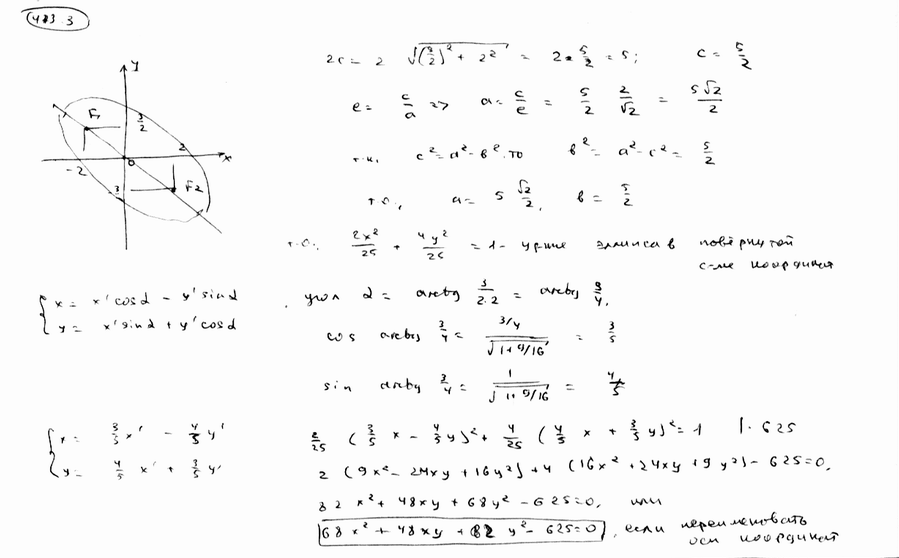 433.3
y
F₁
3/2
2
x
0
-2
-3
F2
2c = 2 √((3/2)² + 2²) = 2 · 5/2 = 5; c = 5/2
e = c/a => a = c/e = 5/2 2/√2 = 5√2/2
т.к. c² = a² - b², то b² = a² - c² = 5/2
т.о., a = 5 √2/2, b = 5/2
т.о., 2x²/25 + 4y²/25 = 1 - ур-ние эллипса в повёрнутой
с-ме координат
{ x = x' cos α - y' sin α
y = x' sin α + y' cos α
угол α = arcctg 3/2·2 = arcctg 3/4,
cos arcctg 3/4 = 3/4 / √(1+9/16) = 3/5
sin arcctg 3/4 = 1 / √(1+9/16) = 4/5
{ x = 3/5 x' - 4/5 y'
y = 4/5 x' + 3/5 y'
2/25 (3/5 x - 4/5 y)² + 4/25 (4/5 x + 3/5 y)² = 1 |· 625
2 (9x² - 24xy + 16y²) + 4 (16x² + 24xy + 9y²) - 625 = 0,
82 x² + 48xy + 68y² - 625 = 0, или
68x² + 48xy + 82 y² - 625 = 0, если переименовать
оси координат